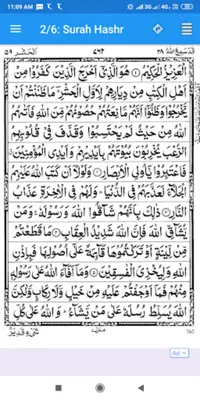 11:09 AM
3G 4G
2/6: Surah Hashr
قد سمع الله ٢٨
٧٩٢
الحشر ٥٩
الْعَزِيْزُ الْحَكِيْمُ ① هُوَ الَّذِيْٓ اَخْرَجَ الَّذِيْنَ كَفَرُوْا مِنْ
اَهْلِ الْكِتٰبِ مِنْ دِيَارِهِمْ لِاَوَّلِ الْحَشْرِ ؔ مَا ظَنَنْتُمْ اَنْ
يَّخْرُجُوْا وَظَنُّوْٓا اَنَّهُمْ مَّانِعَتُهُمْ حُصُوْنُهُمْ مِّنَ اللّٰهِ فَاَتٰىهُمُ
اللّٰهُ مِنْ حَيْثُ لَمْ يَحْتَسِبُوْا وَقَذَفَ فِيْ قُلُوْبِهِمُ
الرُّعْبَ يُخْرِبُوْنَ بُيُوْتَهُمْ بِاَيْدِيْهِمْ وَاَيْدِي الْمُؤْمِنِيْنَ
فَاعْتَبِرُوْا يٰٓاُولِي الْاَبْصَارِ ② وَلَوْلَآ اَنْ كَتَبَ اللّٰهُ عَلَيْهِمُ
الْجَلَآءَ لَعَذَّبَهُمْ فِي الدُّنْيَا ؕ وَلَهُمْ فِي الْاٰخِرَةِ عَذَابُ
النَّارِ ③ ذٰلِكَ بِاَنَّهُمْ شَآقُّوا اللّٰهَ وَرَسُوْلَهٗ ۚ وَمَنْ
يُّشَآقِّ اللّٰهَ فَاِنَّ اللّٰهَ شَدِيْدُ الْعِقَابِ ④ مَا قَطَعْتُمْ
مِّنْ لِّيْنَةٍ اَوْ تَرَكْتُمُوْهَا قَآئِمَةً عَلٰٓى اُصُوْلِهَا فَبِاِذْنِ
اللّٰهِ وَلِيُخْزِيَ الْفٰسِقِيْنَ ⑤ وَمَآ اَفَآءَ اللّٰهُ عَلٰى رَسُوْلِهٖ
مِنْهُمْ فَمَآ اَوْجَفْتُمْ عَلَيْهِ مِنْ خَيْلٍ وَّلَا رِكَابٍ وَّلٰكِنَّ
اللّٰهَ يُسَلِّطُ رُسُلَهٗ عَلٰى مَنْ يَّشَآءُ ؕ وَاللّٰهُ عَلٰى كُلِّ
شَيْءٍ قَدِيْرٌ
Ad